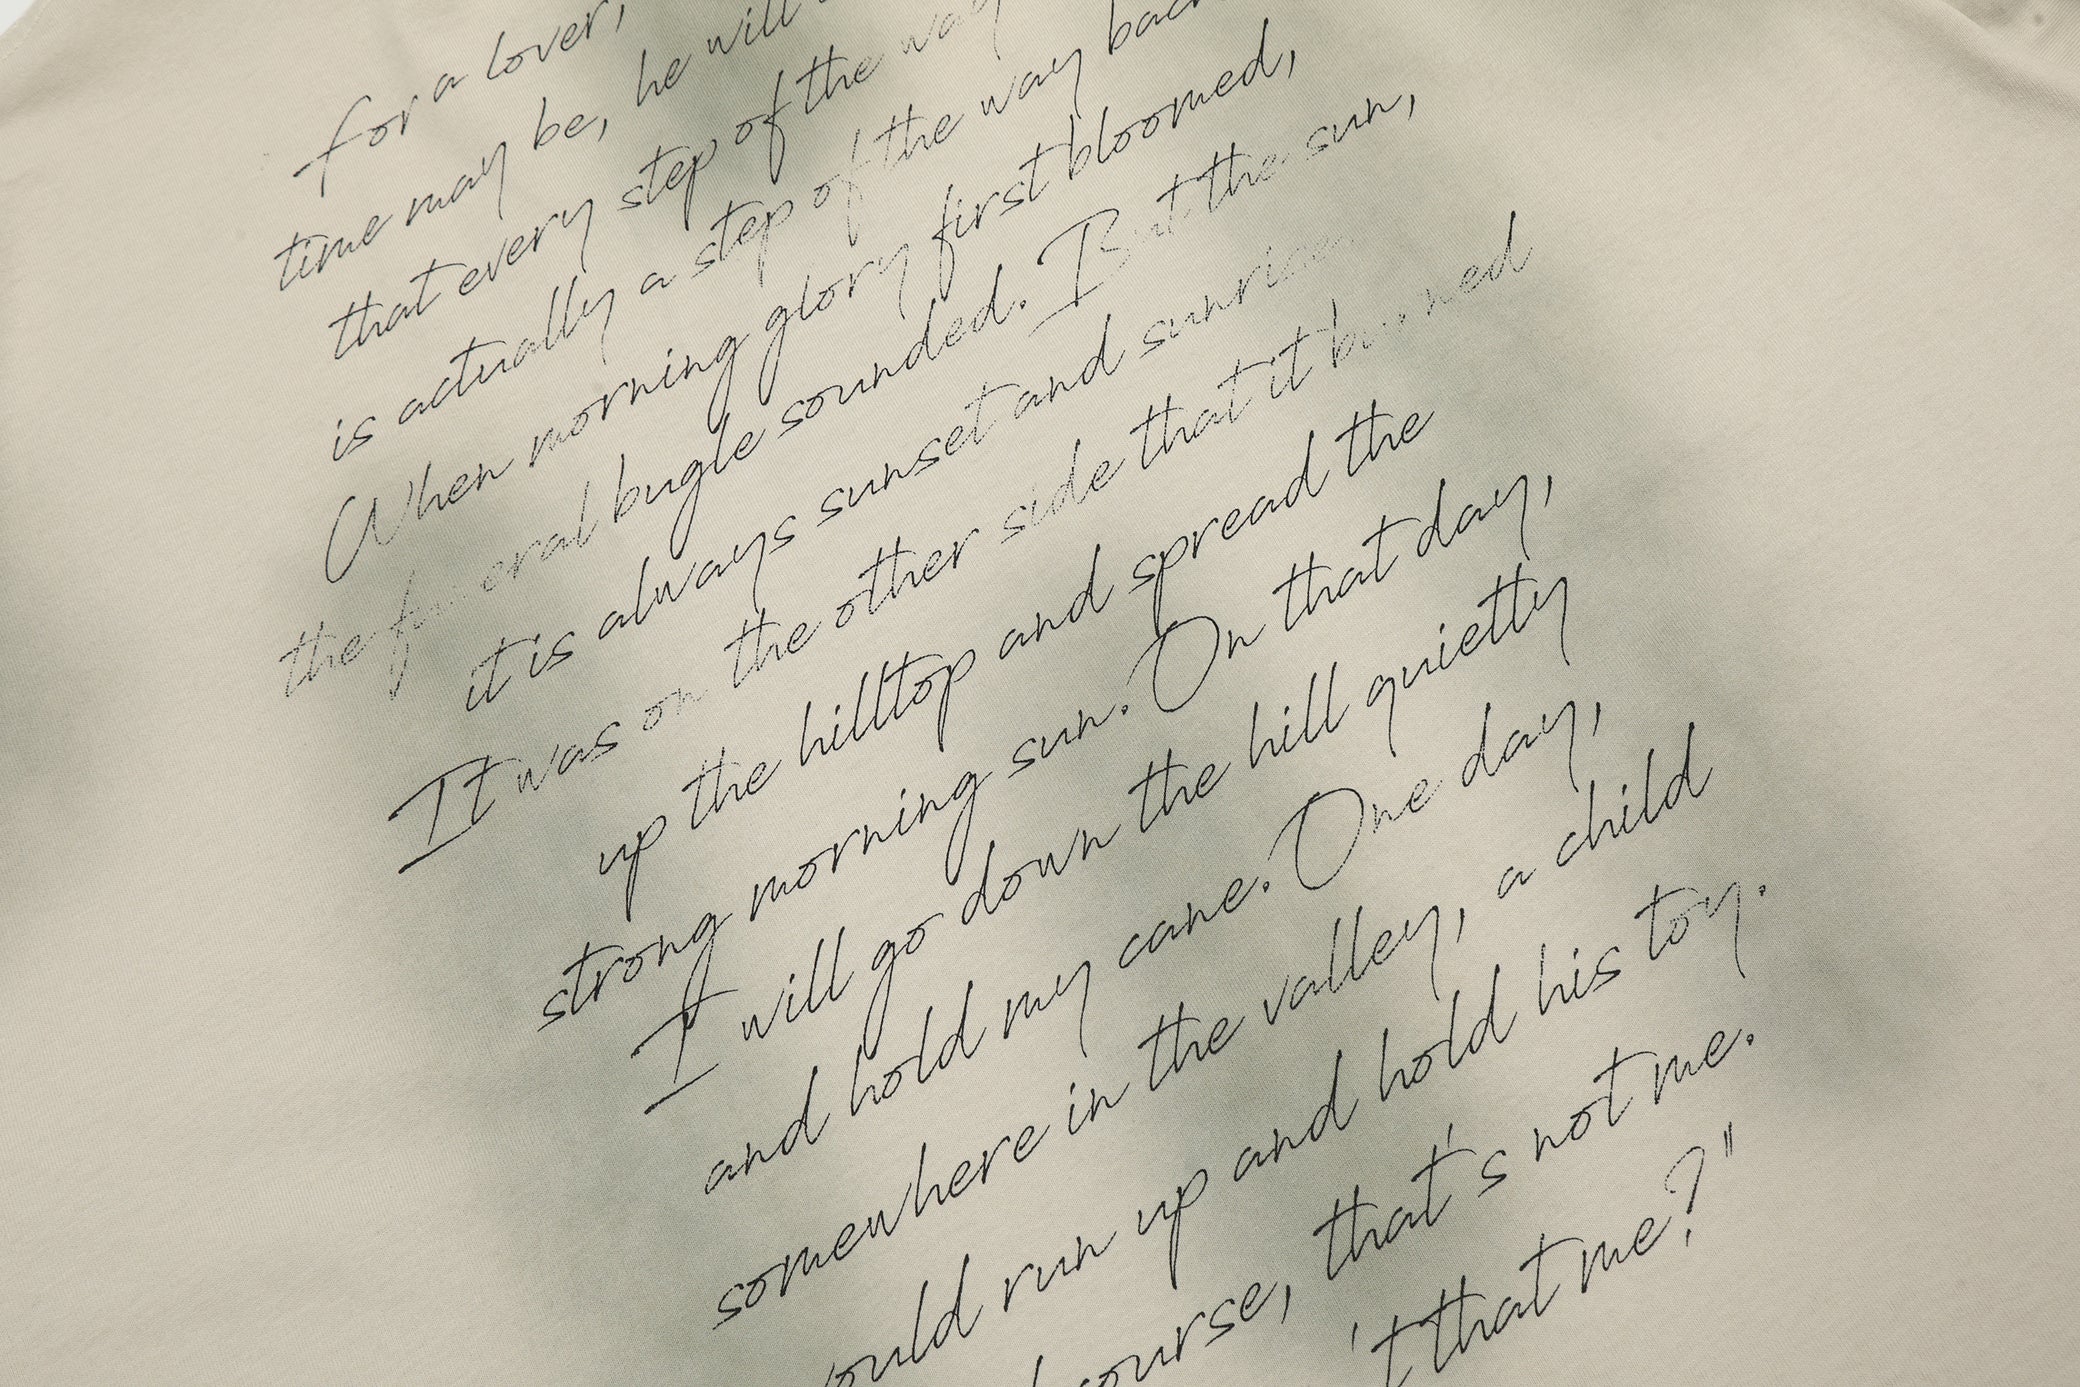 for a lover,
time may be, he will
that every step of the way
is actually a step of the way back
When morning glory first bloomed,
the funeral bugle sounded. But the sun,
it is always sunset and sunrise.
It was on the other side that it burned
up the hilltop and spread the
strong morning sun. On that day,
I will go down the hill quietty
and hold my cane. One day,
somewhere in the valley, a child
run up and hold his toy.
that's not me.
that me?"